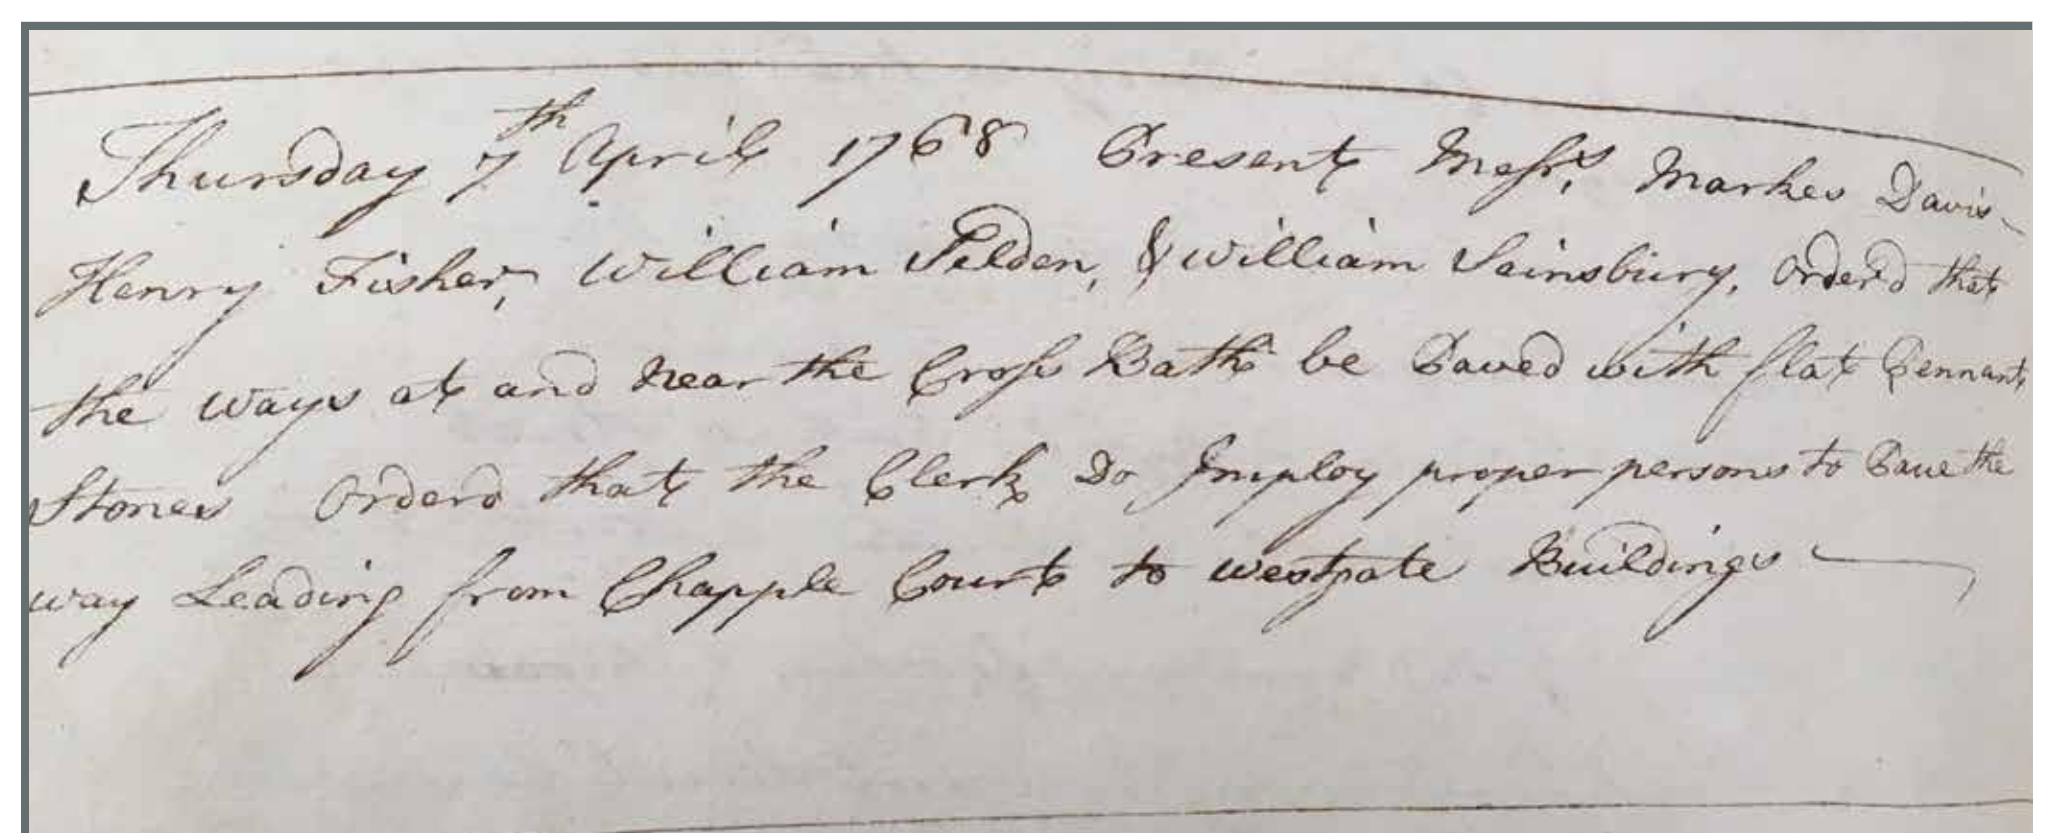 Thursday 7th April 1768 Present Messrs. Markes Davis
Henry Fisher, William Selden, & William Sainsbury, Orderd that
the Ways at and Near the Cross Bath be Paved with flat Pennant
Stones Orderd that the Clerk Do Imploy proper persons to Pave the
way Leading from Chapple Court to Westgate Buildings